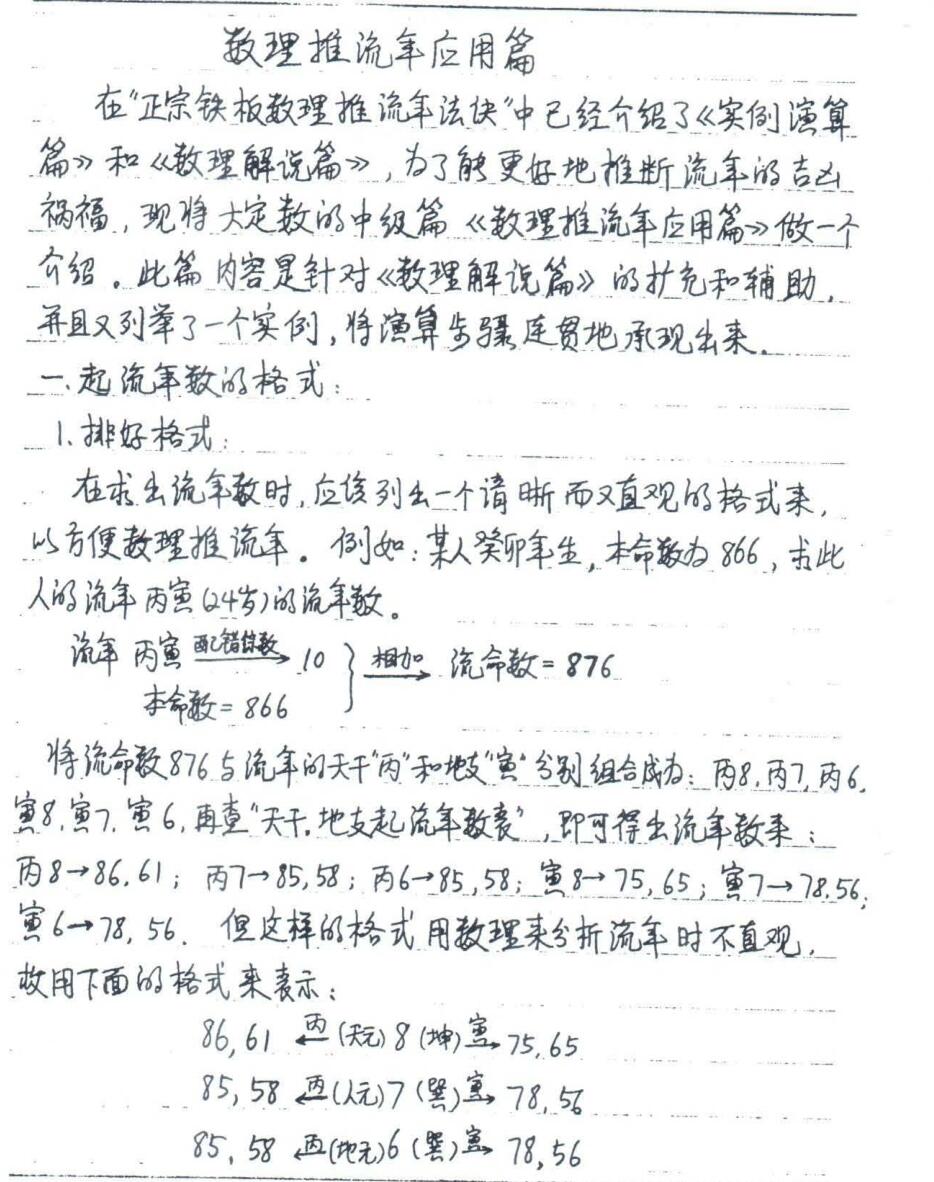 数理推流年应用篇
在"正宗铁板数理推流年法诀"中已经介绍了《实例演算
篇》和《数理解说篇》,为了能更好地推断流年的吉凶
祸福,现将大定数的中级篇《数理推流年应用篇》做一个
介绍。此篇内容是针对《数理解说篇》的扩充和辅助,
并且又列举了一个实例,将演算步骤连贯地承现出来。
一、起流年数的格式:
1、排好格式:
在求出流年数时,应该列出一个清晰而又直观的格式来,
以方便数理推流年。例如:某人癸卯年生,本命数为866,求此
人的流年丙寅(24岁)的流年数。
流年 丙寅 配错综数 → 10 } 相加 → 流命数=876
本命数=866
将流命数876与流年的天干"丙"和地支"寅"分别组合成为:丙8,丙7,丙6,
寅8,寅7,寅6,再查"天干,地支起流年数表",即可得出流年数来:
丙8→86,61;丙7→85,58;丙6→85,58;寅8→75,65;寅7→78,56;
寅6→78,56. 但这样的格式用数理来分析流年时不直观,
故用下面的格式来表示:
86,61 ←丙 (天元) 8 (坤) 寅→ 75,65
85,58 ←丙 (人元) 7 (巽) 寅→ 78,56
85,58 ←丙 (地元) 6 (巽) 寅→ 78,56